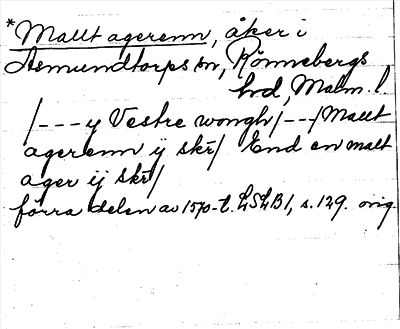 *Mallt agerenn, åker i
Asmundtorps sn, Rönnebergs
hd, Malm. l.
/---y Vestre wongh/--/Mallt
agerenn ij skr/ End en malt
ager ij skr/
förra delen av 1570-t. LSLB1, s. 129. orig.